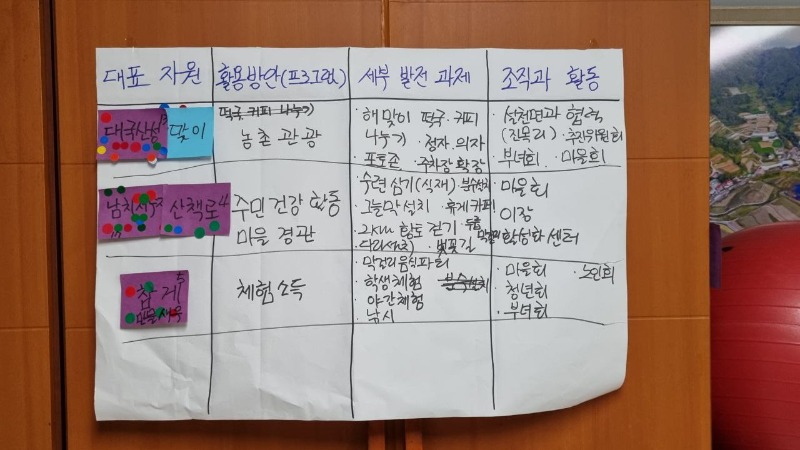 대표 자원
활용방안(프로그램)
세부 발전 과제
조직과 활동
대국산성
맞이
떡국 커피 나누기
농촌 관광
· 해맞이 떡국·커피
나누기 · 정자 의자
· 포토존 · 주차장 확장
· 설천면과 협력
(진목리)· 추진위원회
부녀회 · 마을회
산책로 4
주민 건강 활동
마을 경관
수련 심기(식재)· 분수설치
그늘막 설치 · 휴게카페
2km 황토 걷기
· 벚꽃길
마을회
이장
활성화 센터
참게 5
체험소득
막걸리음식파회
· 학생체험 분수설치
· 야간체험
· 낚시
· 마을회 · 노인회
· 청년회
· 부녀회